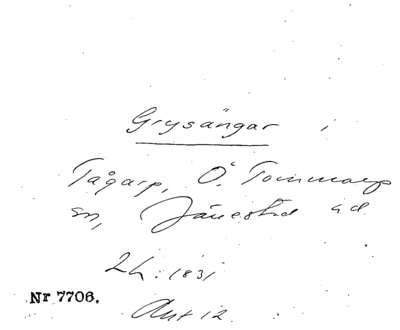 Grysängar i
Tågarp, Ö. Tommarp
sn, Järrestad hd
Lh. 1831
Nr 7706.
Akt 12